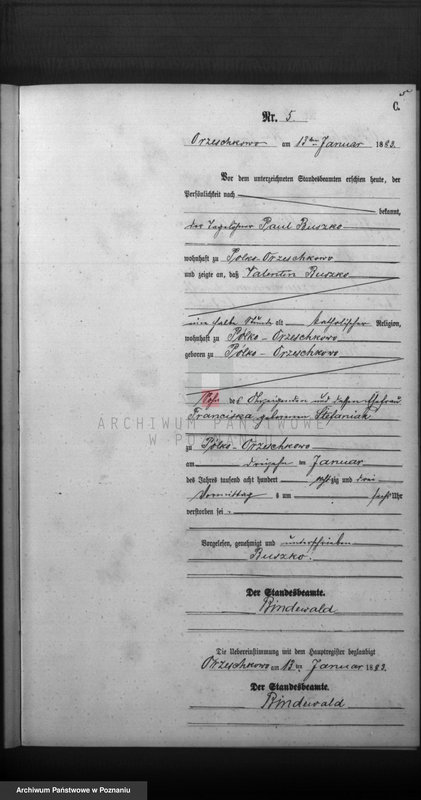 5
C.
Nr. 5.
Orzeschkowo am 13ten Januar 1883.
Vor dem unterzeichneten Standesbeamten erschien heute, der
Persönlichkeit nach
bekannt,
der Tagelöhner Paul Buszko
wohnhaft zu Polko-Orzeschkowo
und zeigte an, daß Valentin Buszko
eine halbe Stunde alt katholischer Religion,
wohnhaft zu Pólko-Orzeschkowo
geboren zu Pólko-Orzeschkowo
Sohn des Anzeigenden und dessen Ehefrau
Franciska geborenen Stefaniak
ARCHIWUM PAŃSTWOWE
W POZNANIU
zu Pólko-Orzeschkowo
am dreizehn ten Januar
des Jahres tausend acht hundert achtzig und drei
Vormittags um sechs Uhr
verstorben sei.
Vorgelesen, genehmigt und unterschrieben
Buszko.
Der Standesbeamte.
Bindewald
Die Uebereinstimmung mit dem Hauptregister beglaubigt
Orzeschkowo am 13ten Januar 1883.
Der Standesbeamte.
Bindewald
Archiwum Państwowe w Poznaniu